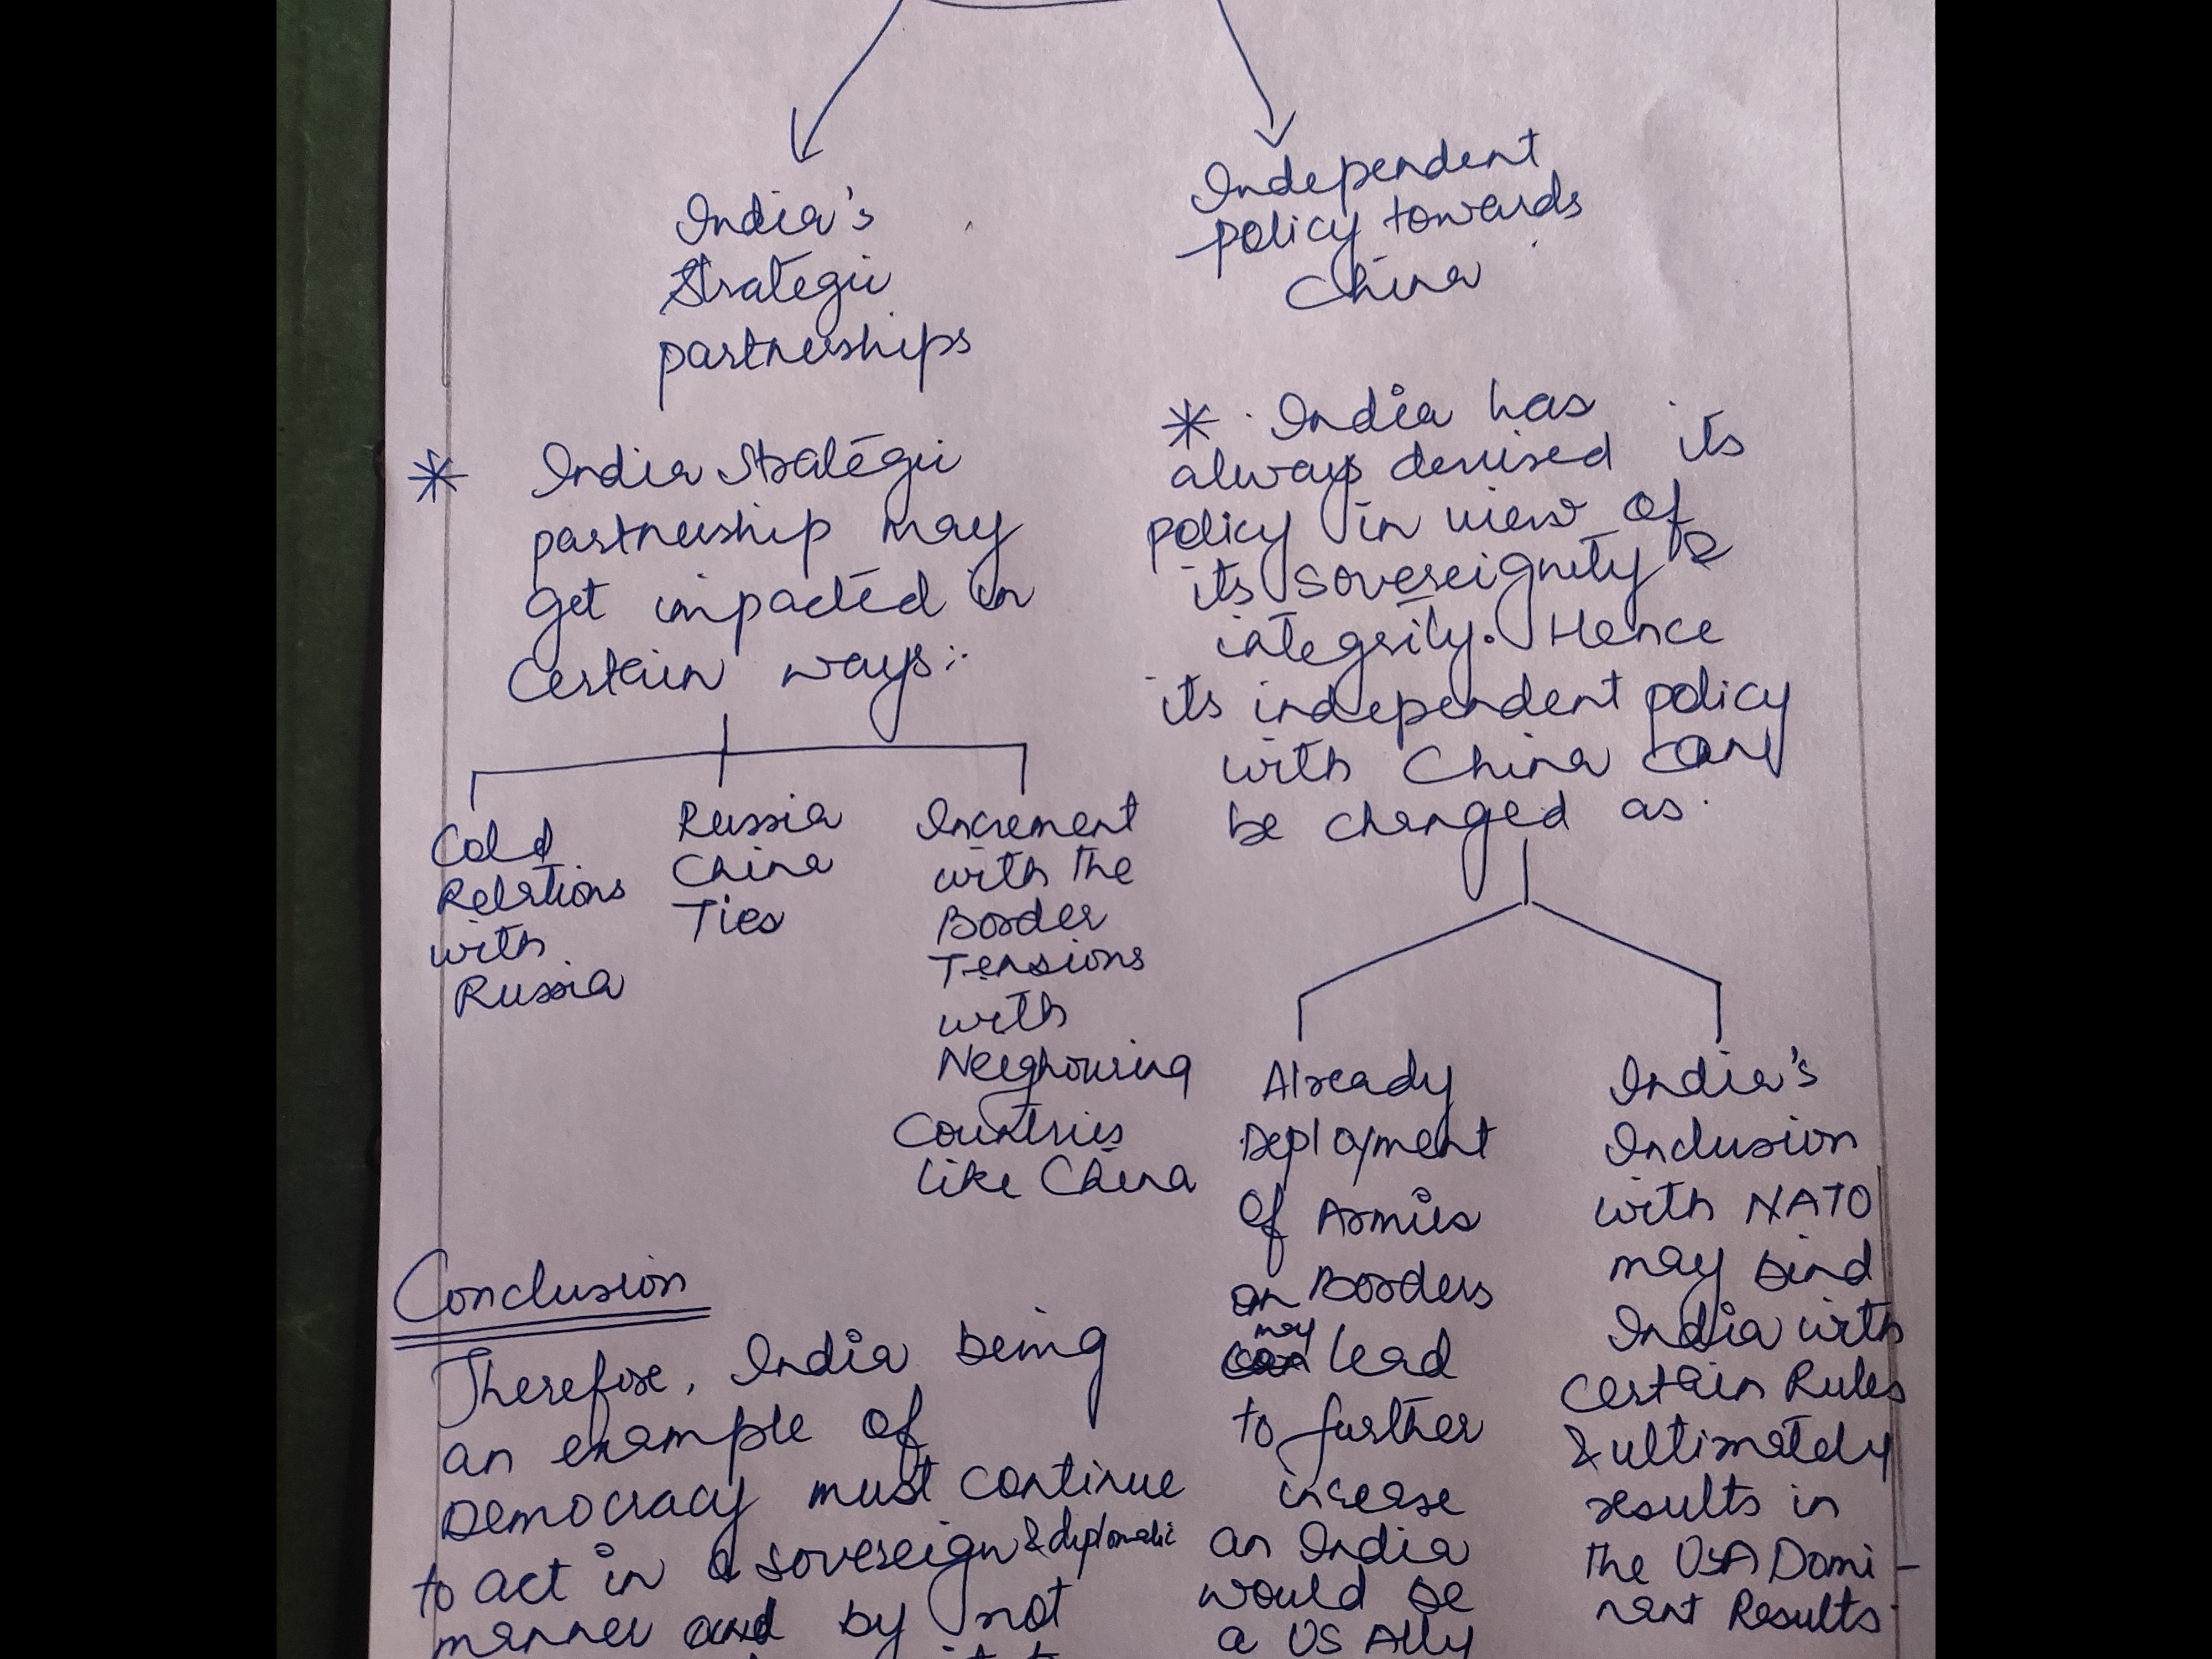 India's
Strategic
partnerships
* India Strategic
partnership may
get impacted in
certain ways :-
Cold
Relations
with
Russia
Russia
China
Ties
Increment
with the
Border
Tensions
with
Neeghouring
Countries
like China
Independent
policy towards
China
* India has
always devised its
policy in view of
its sovereignity &
integrity. Hence
its independent policy
with China can
be changed as
Already
Deployment
of Armies
on Borders
may
lead
to further
increase
as India
would be
a US Ally
India's
Inclusion
with NATO
may bind
India with
certain Rules
& ultimately
results in
the USA Domi-
nant Results.
Conclusion
Therefore, India being
an example of
Democracy must continue
to act in a sovereign & diplomatic
manner and by not